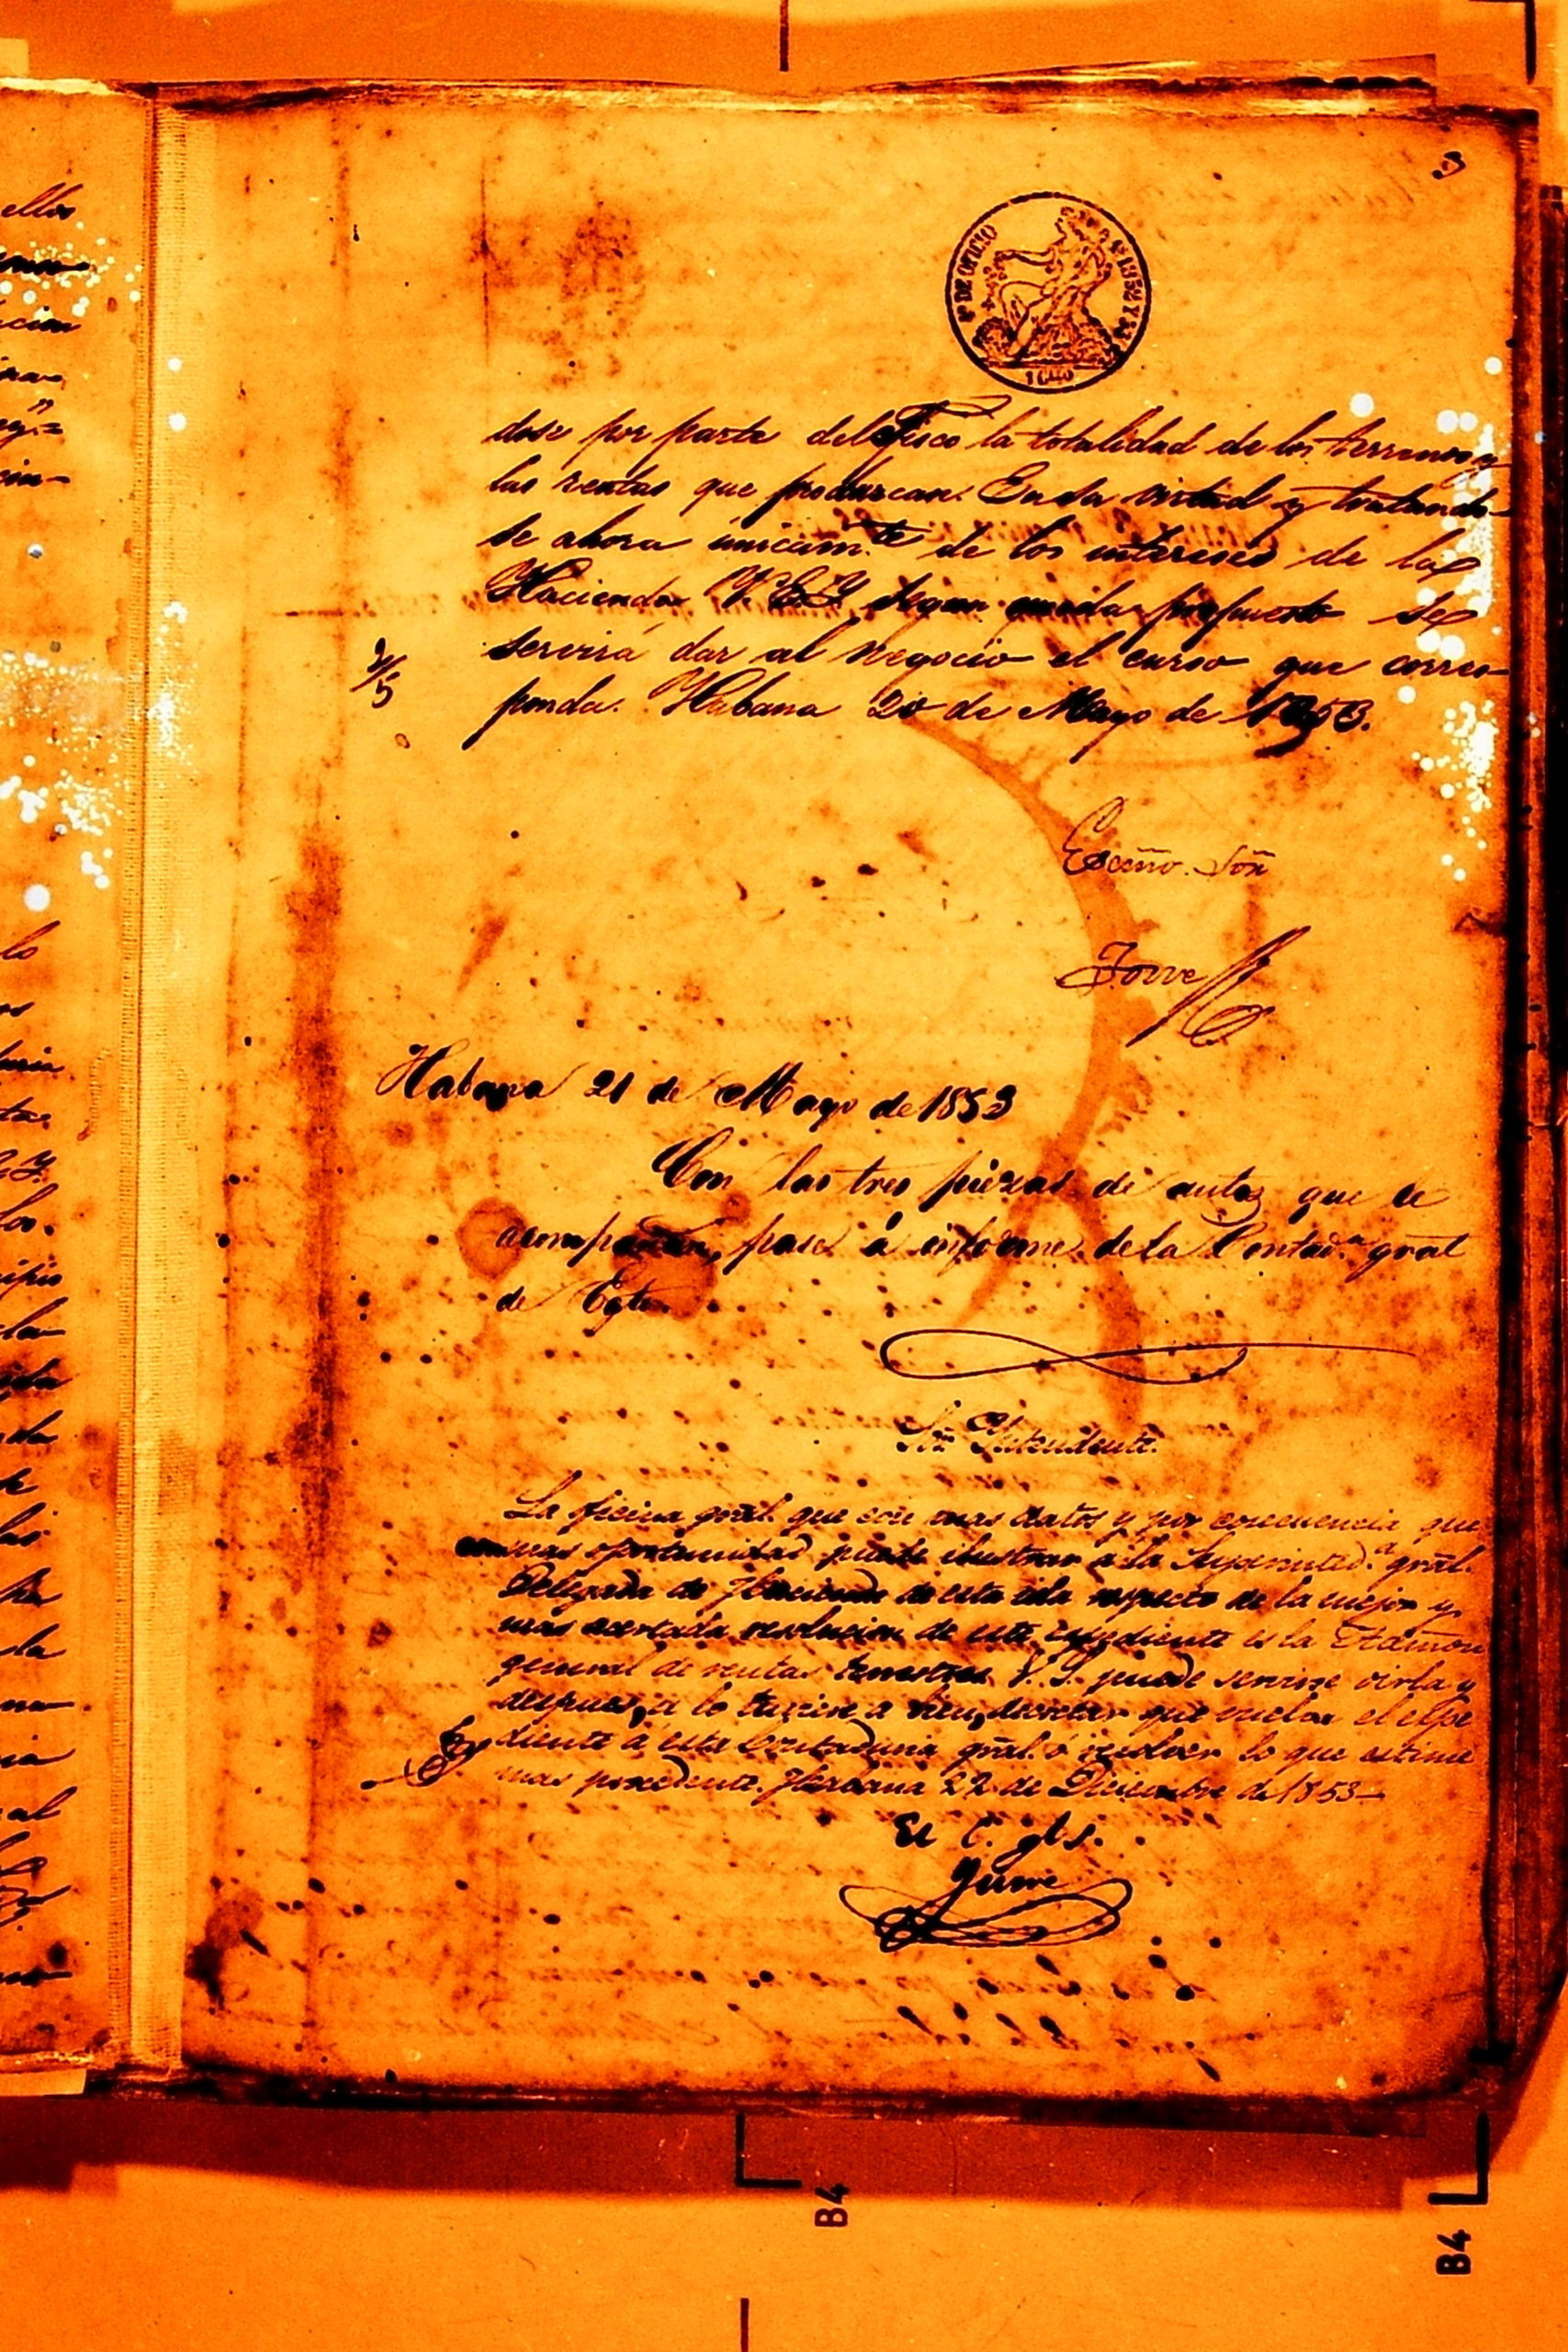 3
4º DE OFICIO Aˢ 1852 Y 53
dose por parte del Fisco la totalidad de los terrenos y
las rentas que produzcan. En tal virtud y tratando-
se ahora únicam.te de los intereses de la
Hacienda V.E.Y. segun queda propuesto se
servirá dar al negocio el curso que corres-
ponda. Habana 20 de Mayo de 1853.
Escmo. Sōr
Torre
Habana 21 de Mayo de 1853
Con las tres piezas de autos que se
acompañan, pase á informe de la Contad.a gral
de Egto.
Sōr Yntendente.
La oficina gral. que con mas datos y por consecuencia que
con mas oportunidad puede ilustrar a la Superinted.a gral.
Delegada de Hacienda de esta isla respecto de la mejor y
mas acertada resolucion de este espediente es la Admon
general de rentas terrestres V.S. puede servirse oirla y
despues, si lo tuviere a bien, decretar que vuelva el espe
diente á esta Contaduria gral. ó resolver lo que estime
mas procedente. Habana 22 de Diciembre de 1853–
El C. gl.
ellos
lo
la
al
B4
B4